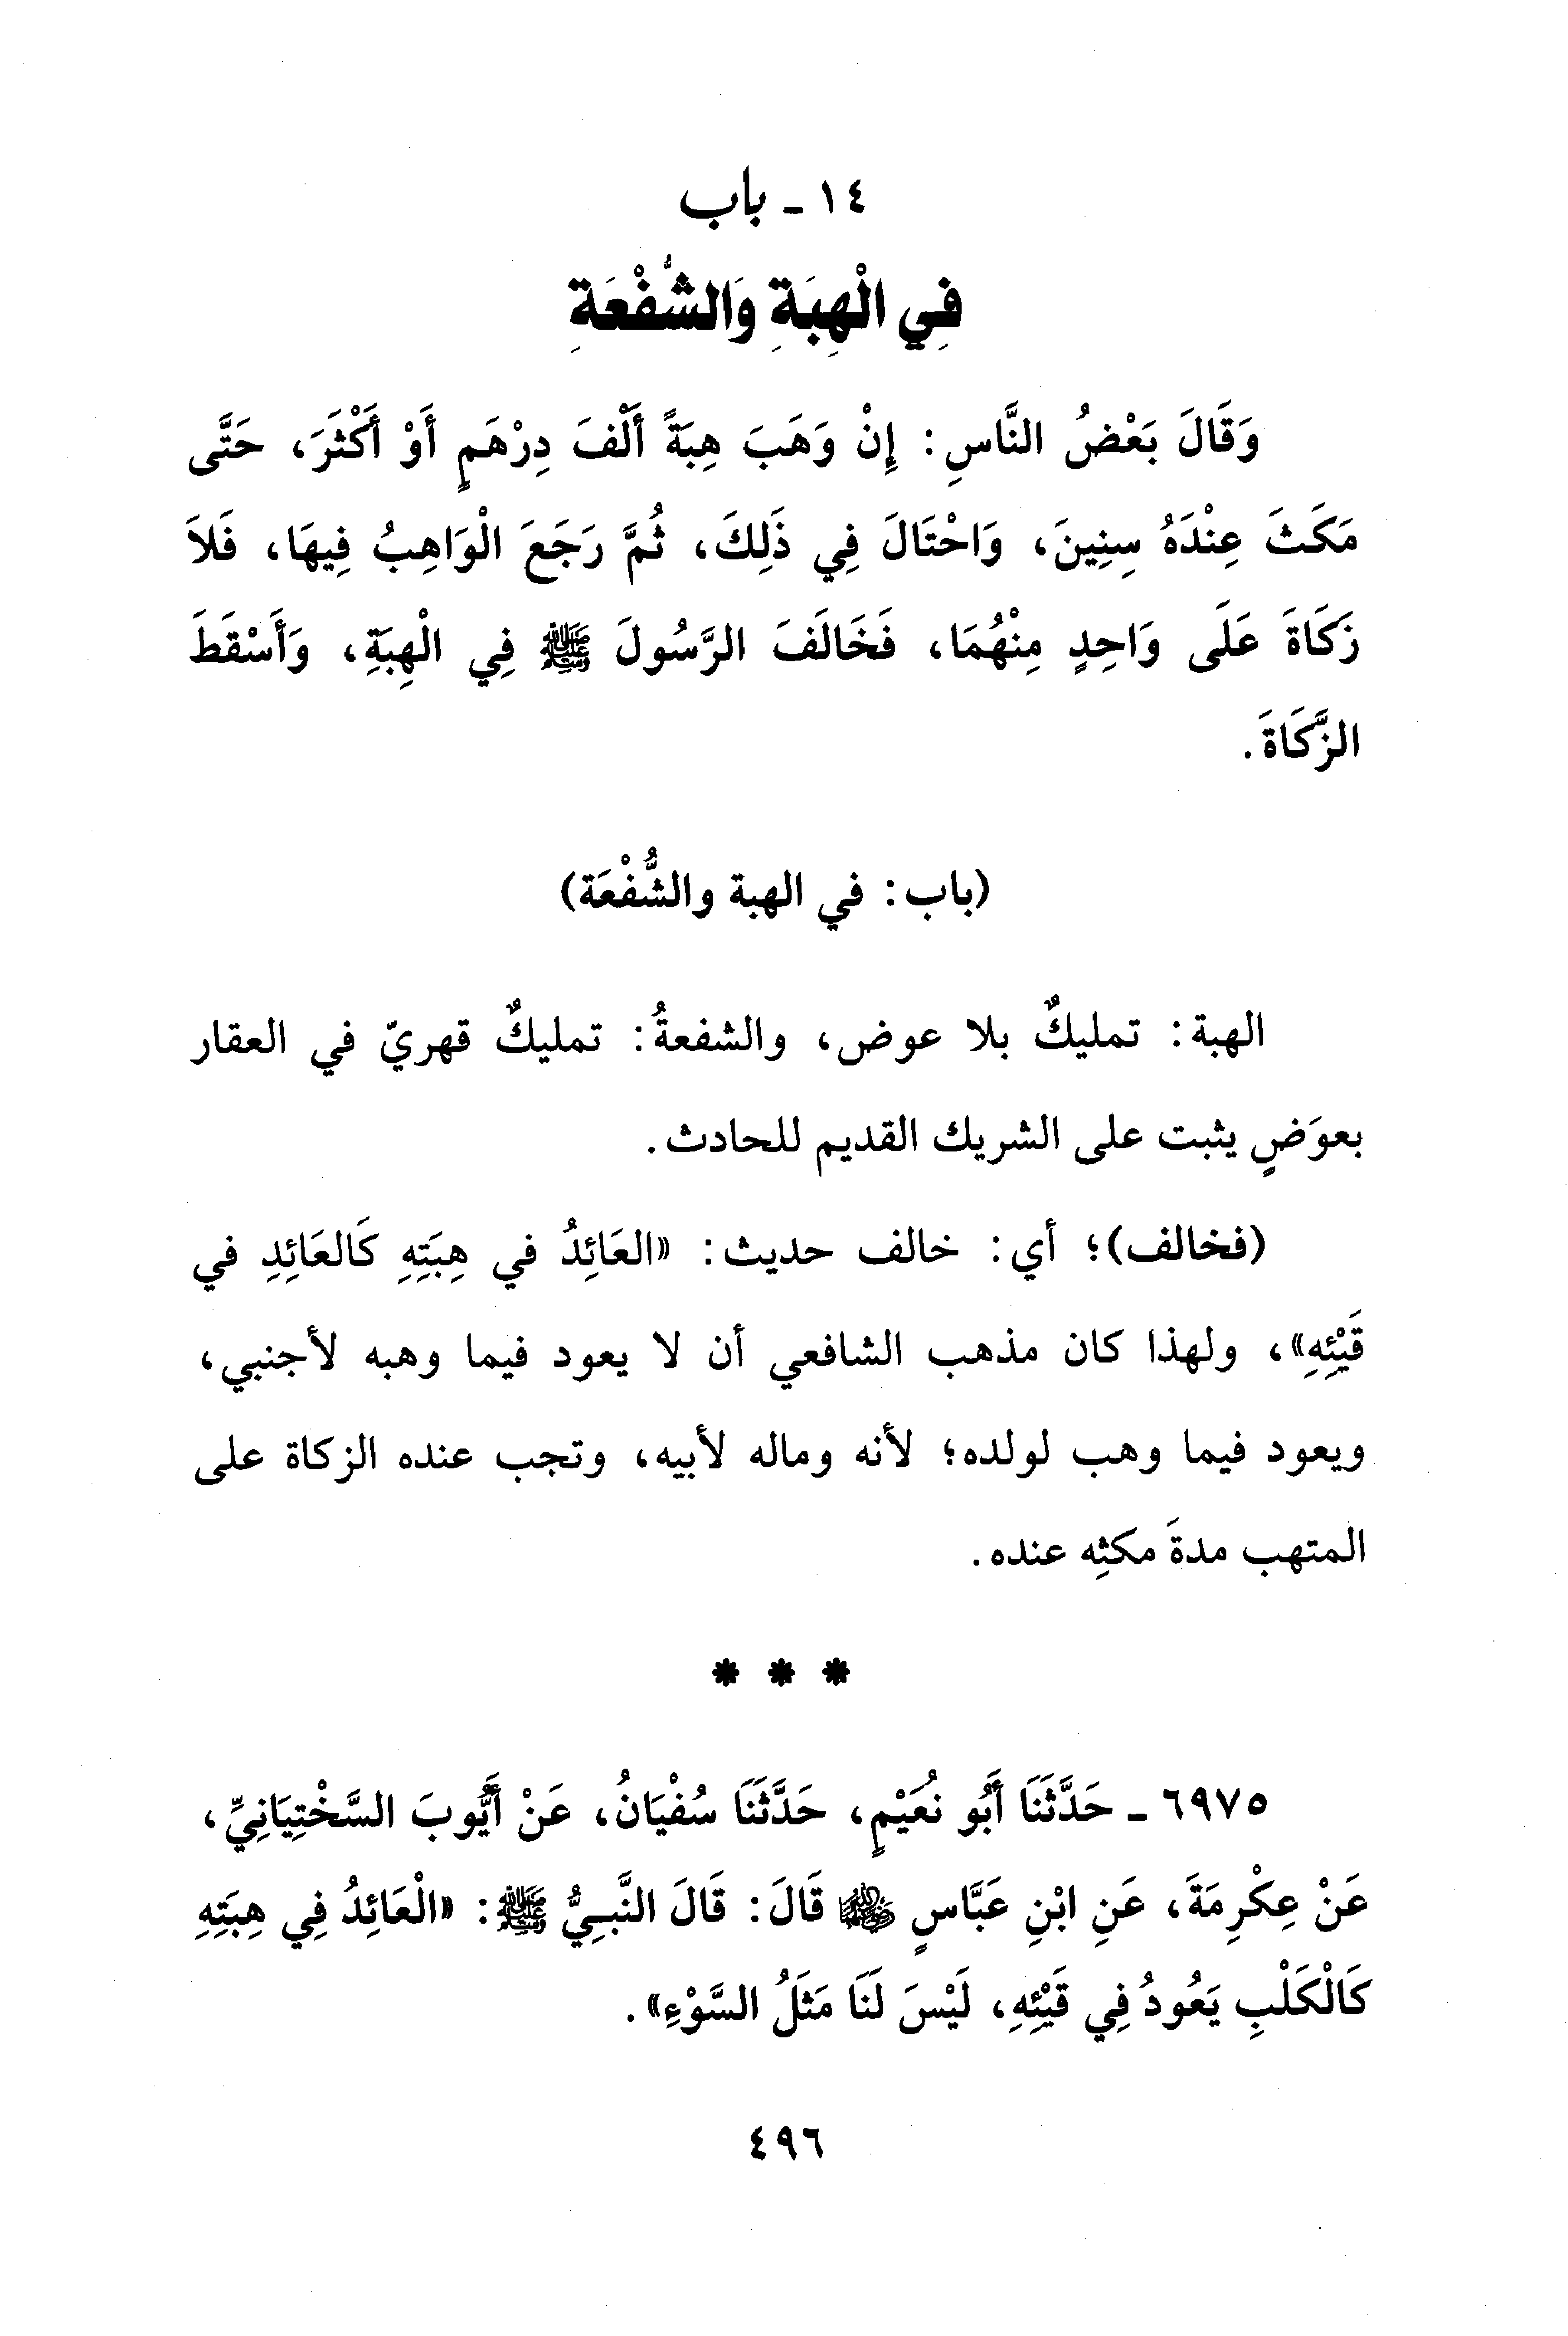 ١٤ - باب
فِي الْهِبَةِ وَالشُّفْعَةِ
وَقَالَ بَعْضُ النَّاسِ: إِنْ وَهَبَ هِبَةً أَلْفَ دِرْهَمٍ أَوْ أَكْثَرَ، حَتَّى
مَكَثَ عِنْدَهُ سِنِينَ، وَاحْتَالَ فِي ذَلِكَ، ثُمَّ رَجَعَ الْوَاهِبُ فِيهَا، فَلاَ
زَكَاةَ عَلَى وَاحِدٍ مِنْهُمَا، فَخَالَفَ الرَّسُولَ ﷺ فِي الْهِبَةِ، وَأَسْقَطَ
الزَّكَاةَ.
(باب: في الهبة والشُّفْعَة)
الهبة: تمليكٌ بلا عوض، والشفعةُ: تمليكٌ قهريّ في العقار
بعوَضٍ يثبت على الشريك القديم للحادث.
(فخالف)؛ أي: خالف حديث: «العَائِدُ في هِبَتِهِ كَالعَائِدِ في
قَيْئِهِ»، ولهذا كان مذهب الشافعي أن لا يعود فيما وهبه لأجنبي،
ويعود فيما وهب لولده؛ لأنه وماله لأبيه، وتجب عنده الزكاة على
المتهب مدةَ مكثِه عنده.
* * *
٦٩٧٥ - حَدَّثَنَا أَبُو نُعَيْمٍ، حَدَّثَنَا سُفْيَانُ، عَنْ أَيُّوبَ السَّخْتِيَانِيِّ،
عَنْ عِكْرِمَةَ، عَنِ ابْنِ عَبَّاسٍ ﵁ قَالَ: قَالَ النَّبِيُّ ﷺ: «الْعَائِدُ فِي هِبَتِهِ
كَالْكَلْبِ يَعُودُ فِي قَيْئِهِ، لَيْسَ لَنَا مَثَلُ السَّوْءِ».
٤٩٦